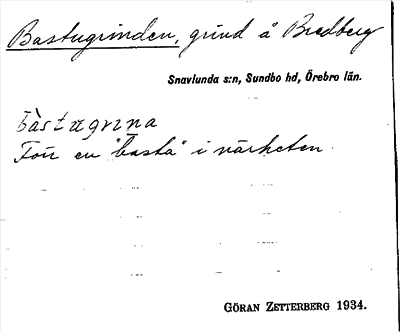 Bastugrinden, grind å Bredberg
Snavlunda s:n, Sundbo hd, Örebro län.
bàstugrına
Förr en "basta" i närheten.
GÖRAN ZETTERBERG 1934.